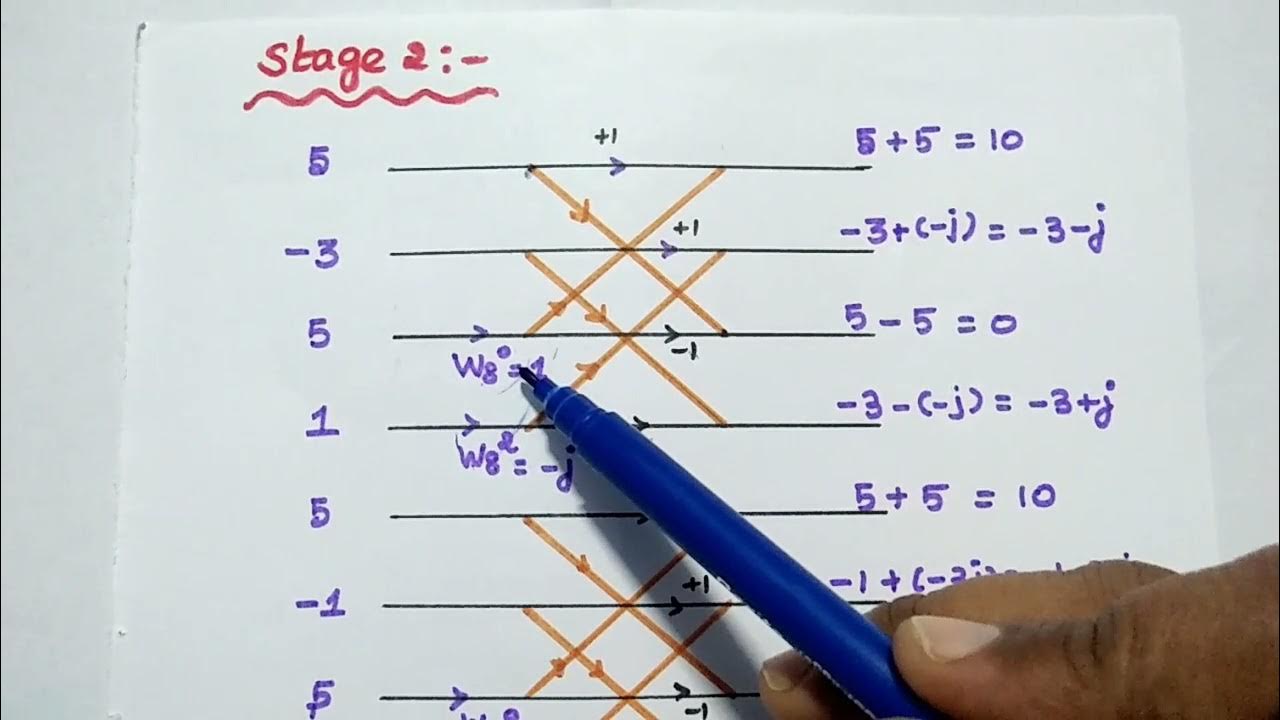 Stage 2:-
+1
5 5+5 = 10
+1
-3 -3+(-j) = -3-j
5 5-5 = 0
-1
W8⁰=1
1 -3-(-j) = -3+j
W8²=-j
5 5+5 = 10
+1
-1 -1+(-3j)
5
-1